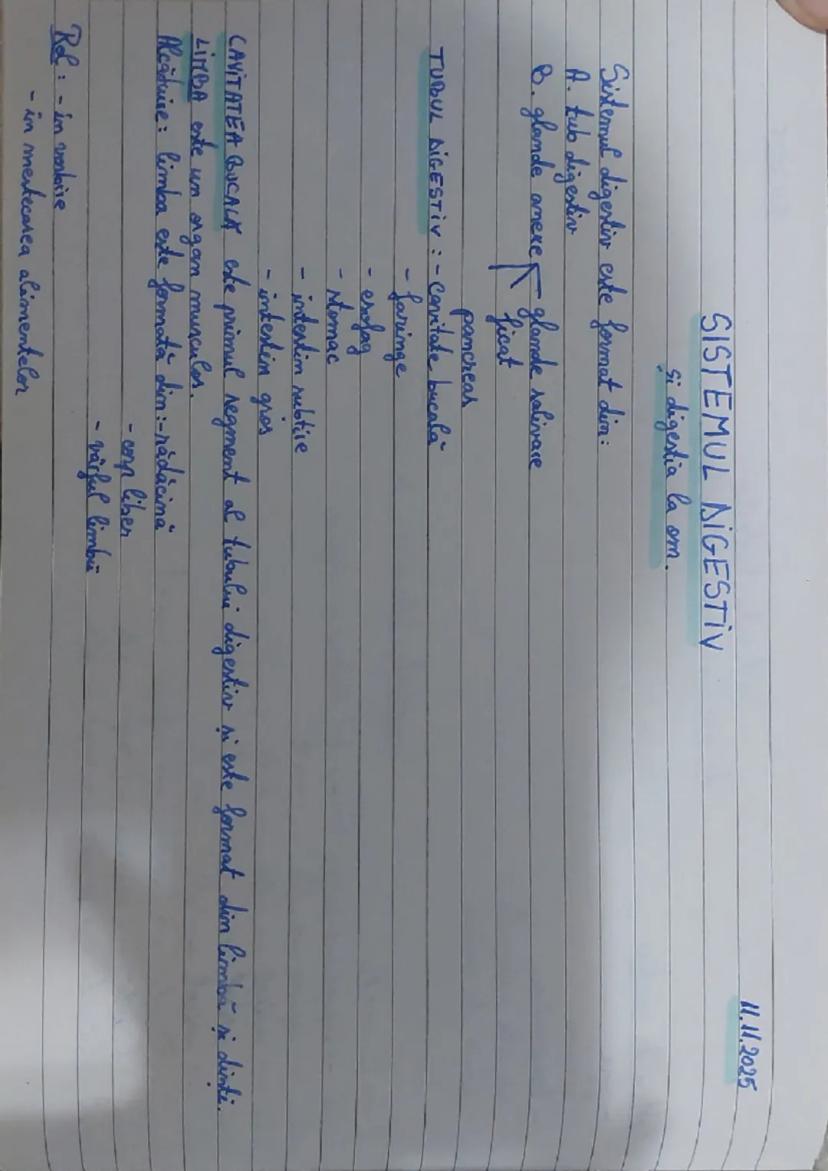 11.11.2025
SISTEMUL DIGESTIV
și digestia la om.
Sistemul digestiv este format din:
A. tub digestiv
B. glande anexe glande salivare
ficat
pancreas
TUBUL DIGESTIV : - cavitate bucală
- faringe
- esofag
- stomac
- intestin subțire
- intestin gros
CAVITATEA BUCALĂ este primul segment al tubului digestiv și este format din limbă și dinți.
LIMBA este un organ musculos.
Alcătuire: limba este formată din: - rădăcină
- corp liber
- vârful limbii
Rol : - în vorbire
- în mestecarea alimentelor